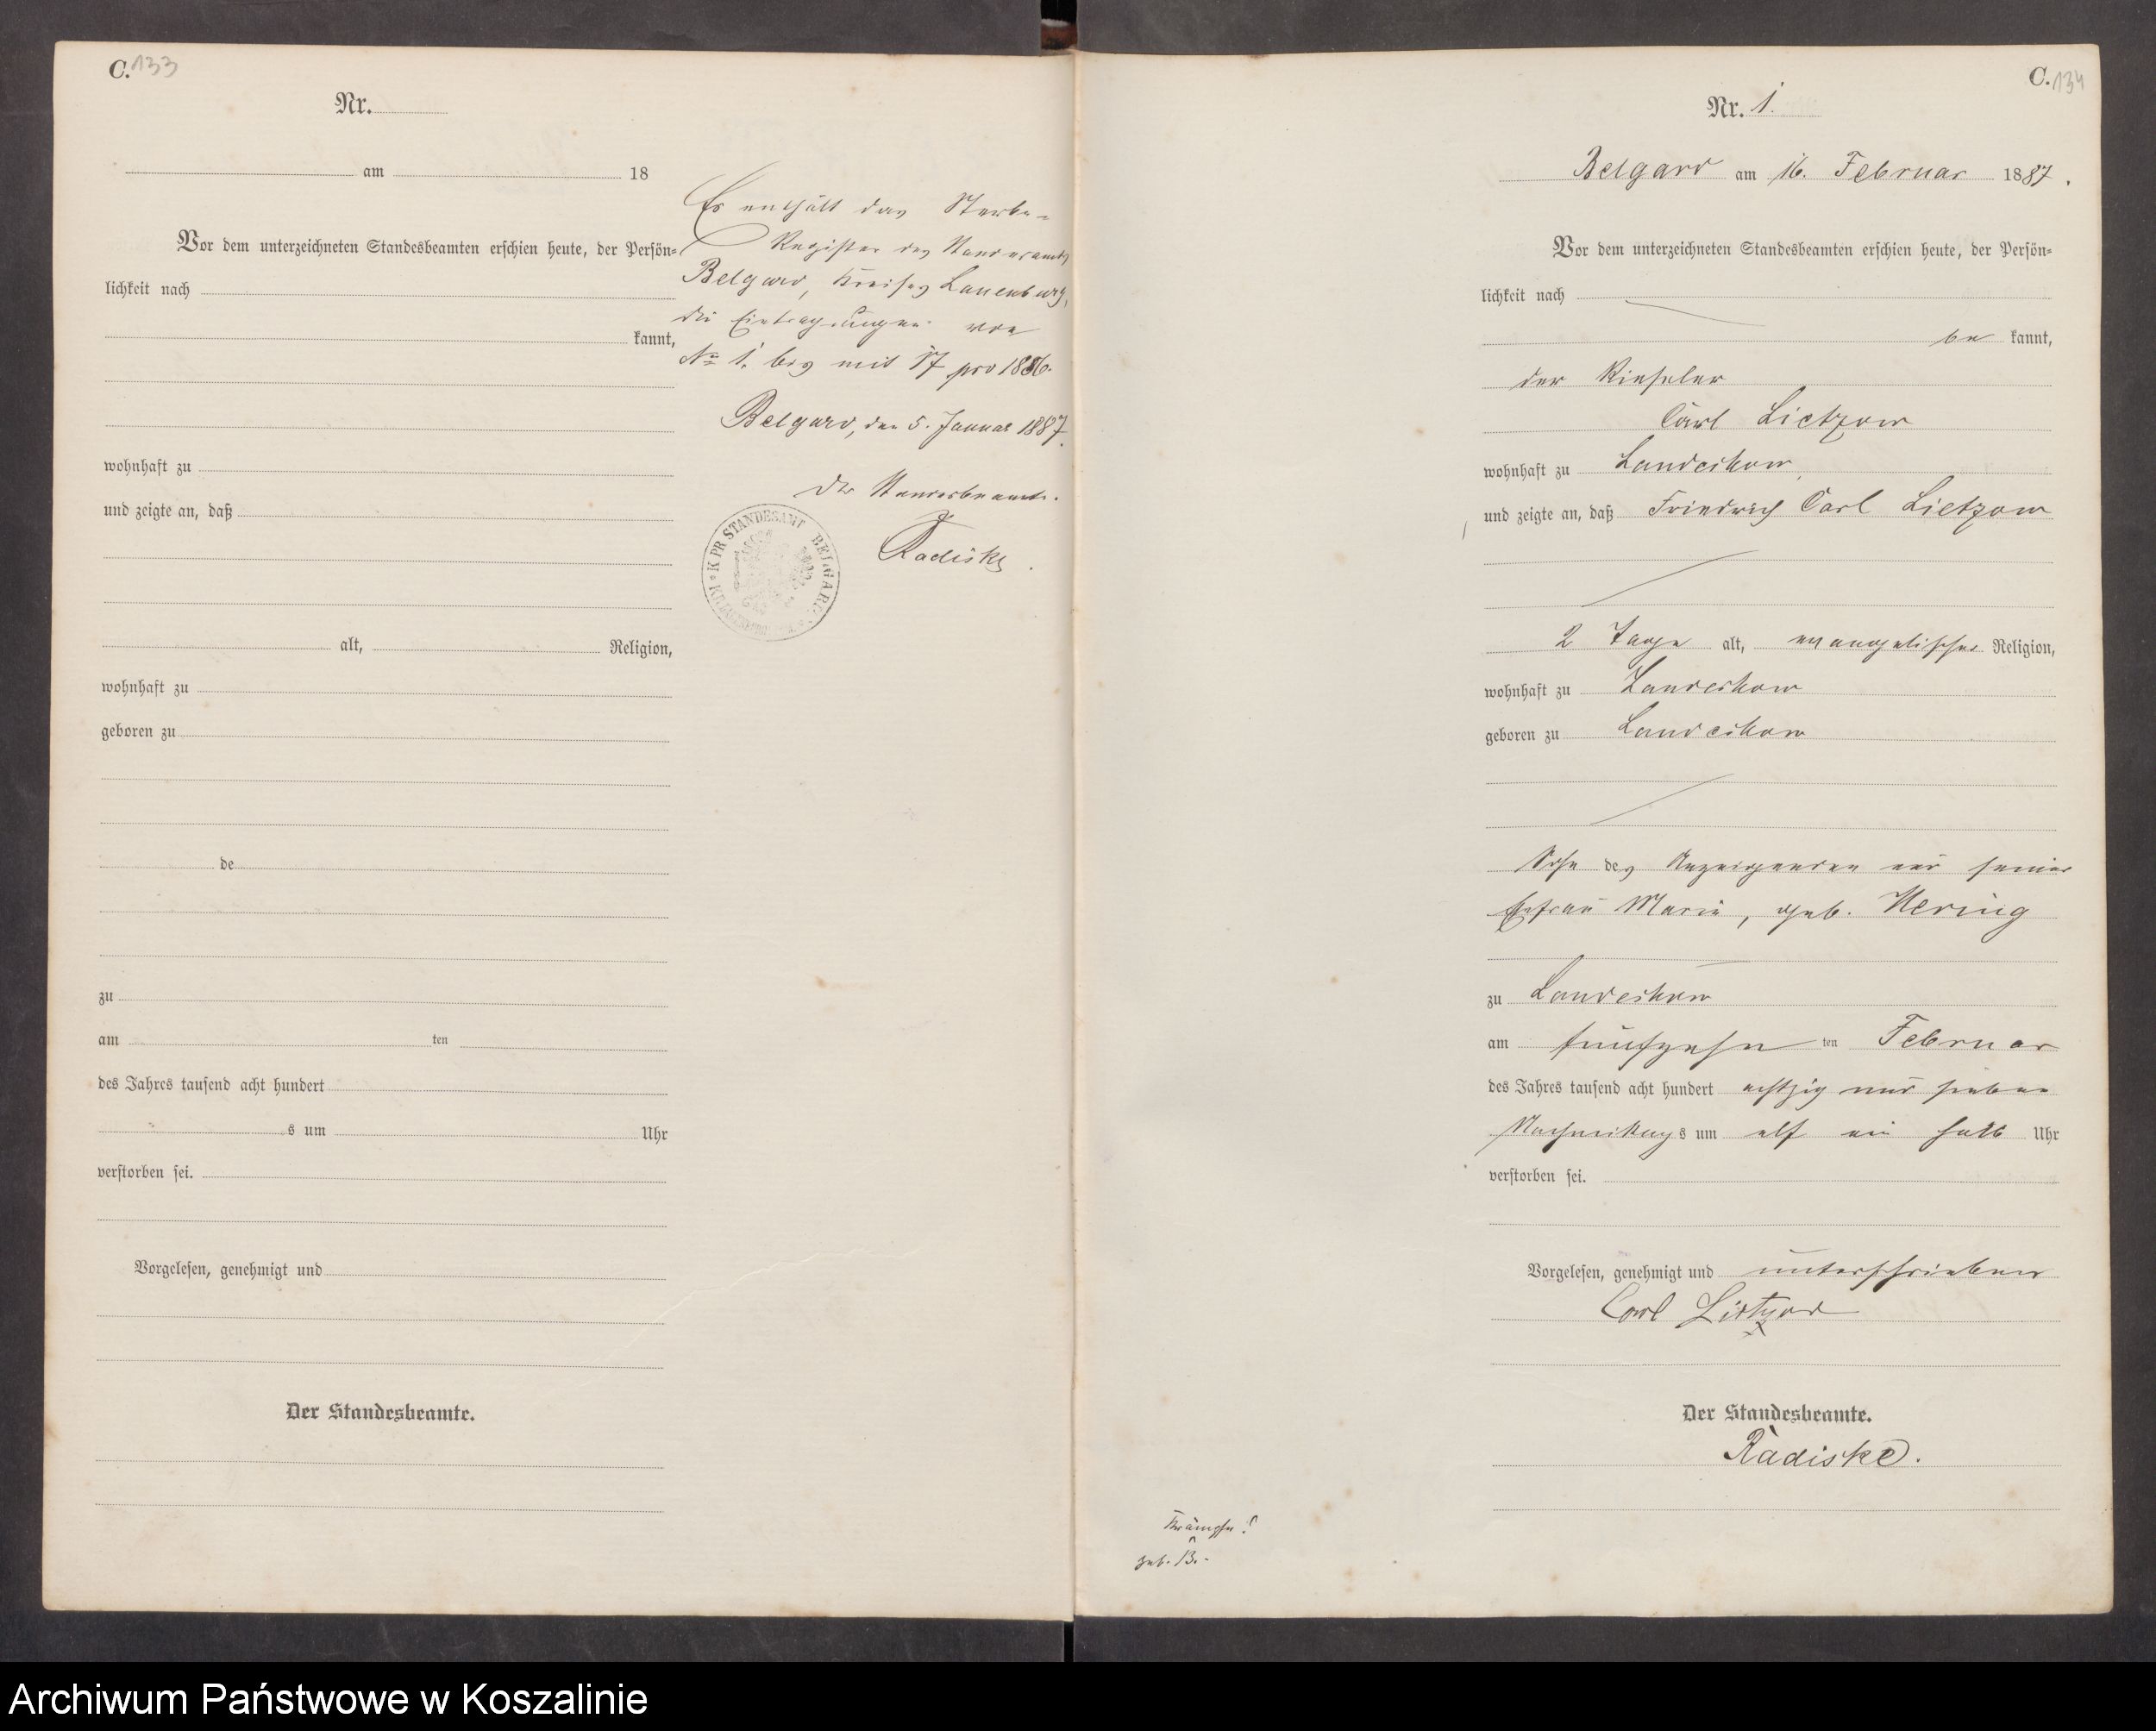 C. 133
Nr.
am 18
Vor dem unterzeichneten Standesbeamten erschien heute, der Persön=
lichkeit nach
kannt,
wohnhaft zu
und zeigte an, daß
alt, Religion,
wohnhaft zu
geboren zu
de
zu
am ten
des Jahres tausend acht hundert
s um Uhr
verstorben sei.
Vorgelesen, genehmigt und
Der Standesbeamte.
Es enthält das Sterbe-
Register des Standesamts
Belgard, Kreises Lauenburg,
die Eintragungen von
No 1. bis mit 17 pro 1886.
Belgard, den 5. Januar 1887.
Der Standesbeamte.
Radiske
K. PR. STANDESAMT BELGARD
C. 134
Nr. 1.
Belgard am 16. Februar 1887.
Vor dem unterzeichneten Standesbeamten erschien heute, der Persön=
lichkeit nach
be kannt,
der Rieseler
Carl Lietzow
wohnhaft zu Landeckow,
und zeigte an, daß Friedrich Carl Lietzow
2 Tage alt, evangelischer Religion,
wohnhaft zu Landeckow
geboren zu Landeckow
Sohn des Anzeigenden und seiner
Ehefrau Marie, geb. Hering
zu Landeckow
am fünfzehn ten Februar
des Jahres tausend acht hundert achtzig und sieben
Nachmittags um elf ein halb Uhr
verstorben sei.
Vorgelesen, genehmigt und unterschrieben
Carl Lietzow
Der Standesbeamte.
Radiske.
Krämpfe!
geb. 13.
Archiwum Państwowe w Koszalinie